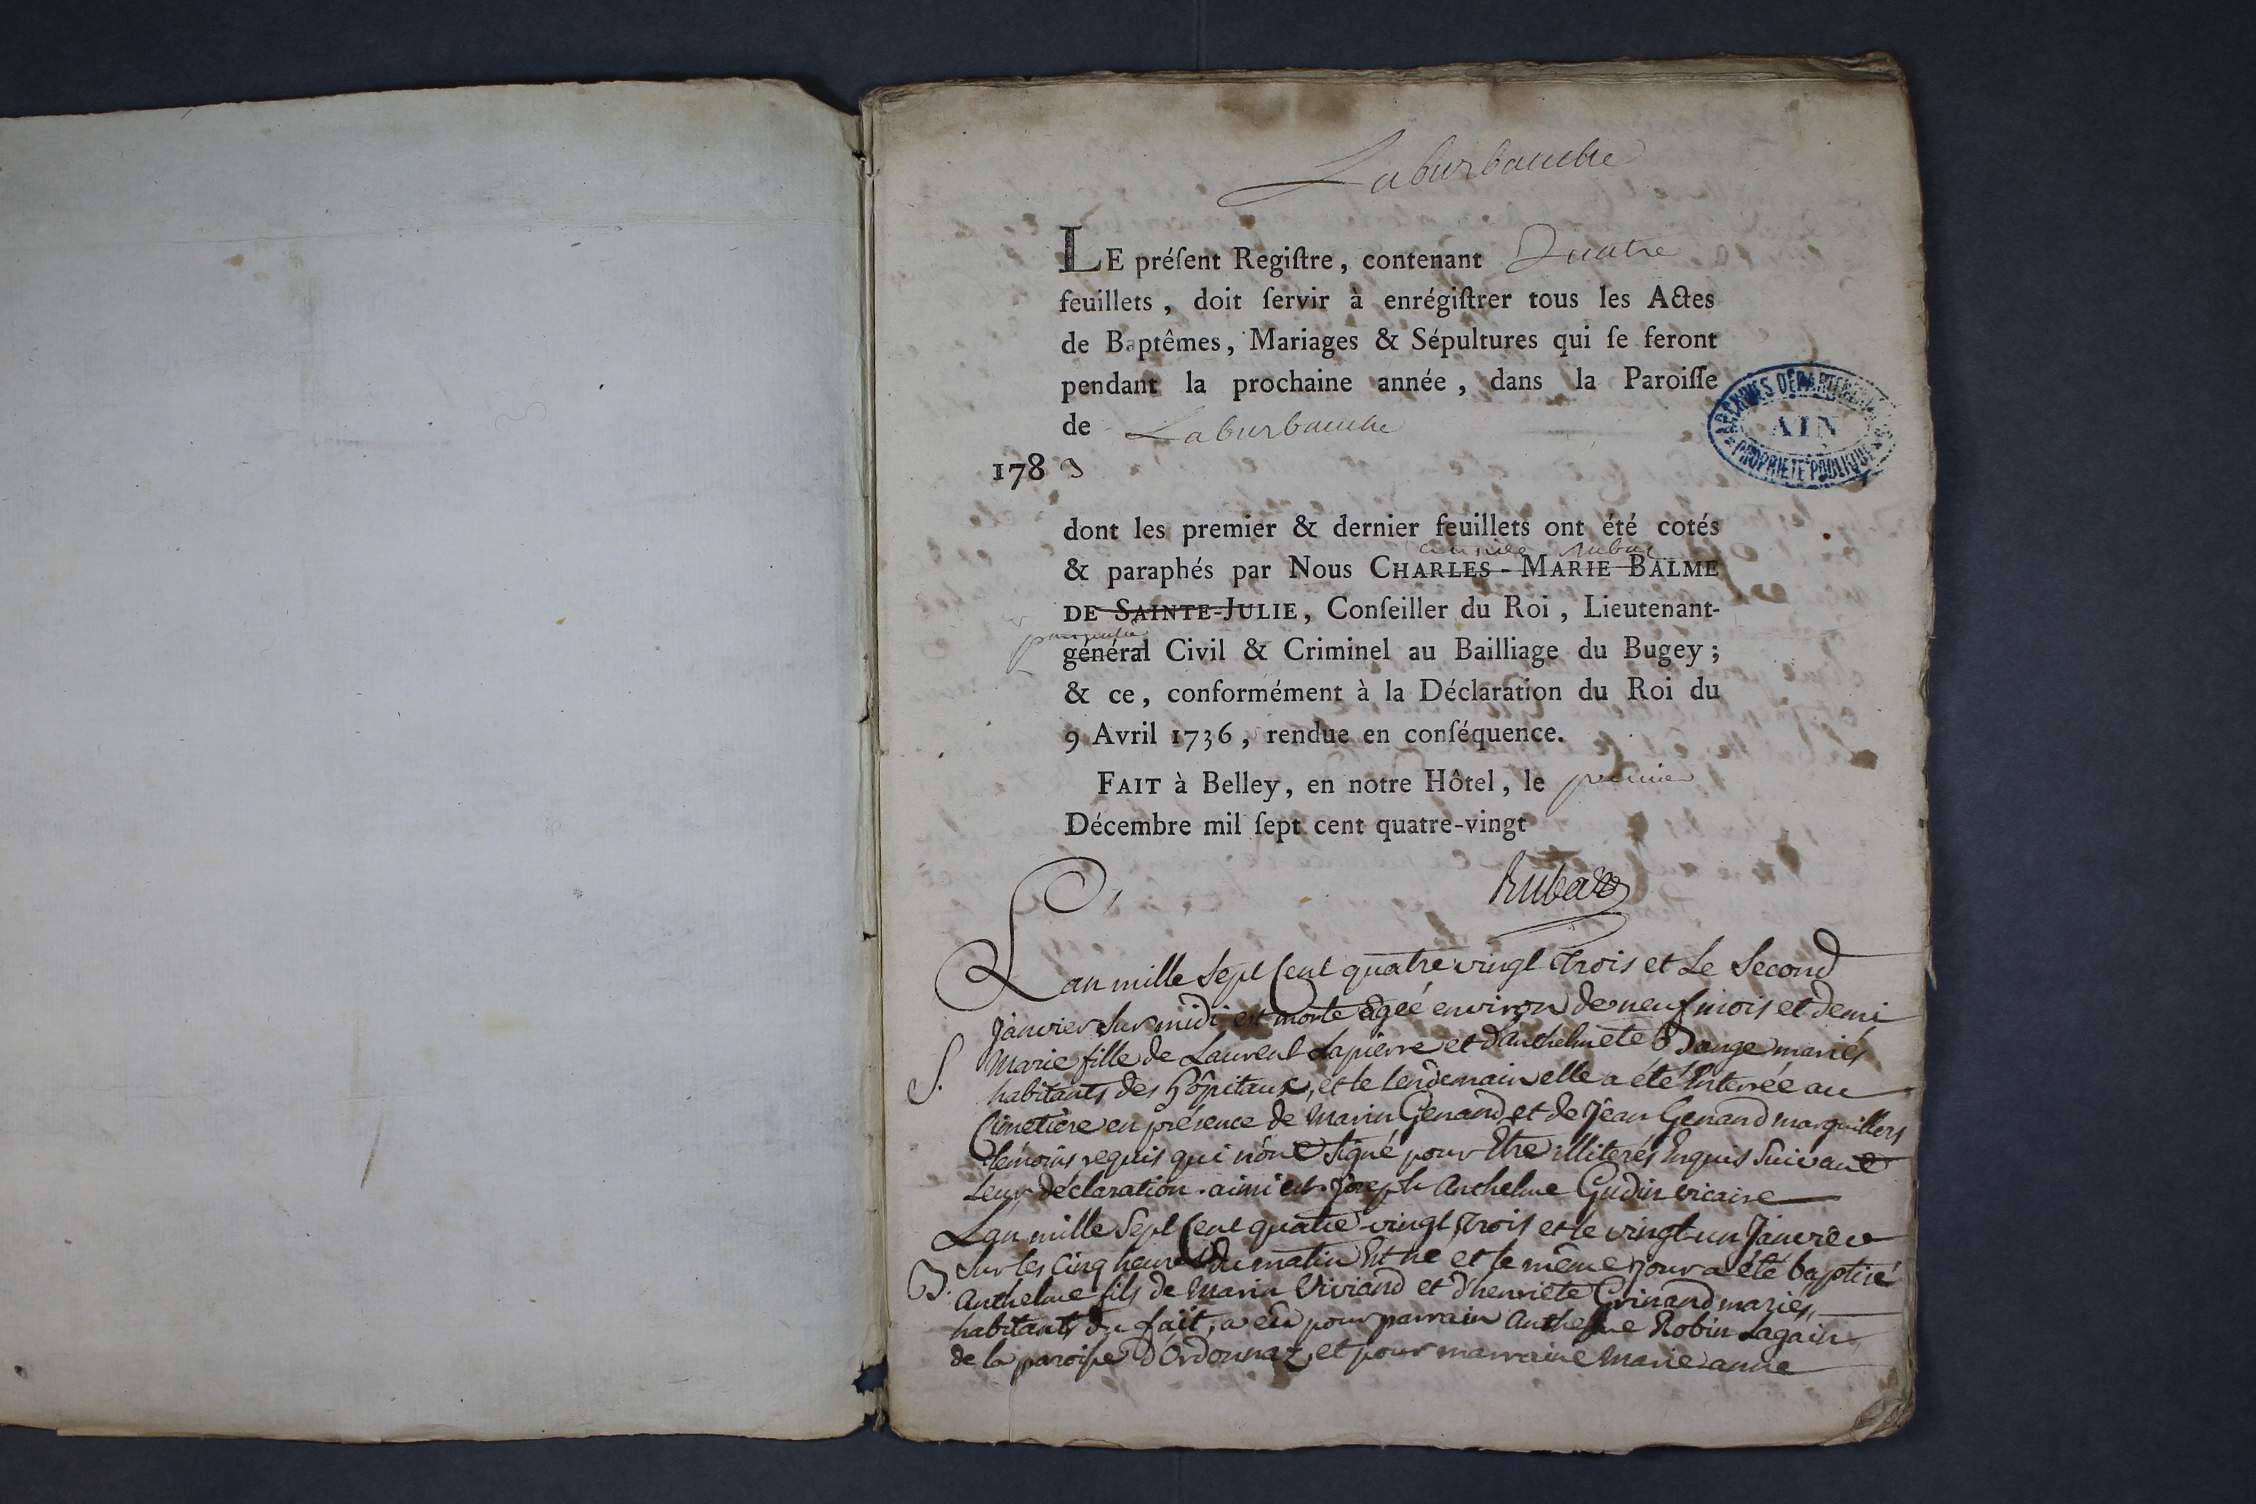 Laburbanche
LE préſent Regiſtre, contenant Quatre
feuillets, doit ſervir à enrégiſtrer tous les Actes
de Baptêmes, Mariages & Sépultures qui ſe feront
pendant la prochaine année, dans la Paroiſſe
de Laburbanche
ARCHIVES DÉPARTEMENTALES
AIN
PROPRIÉTÉ PUBLIQUE
1783
dont les premier & dernier feuillets ont été cotés
Rubat
& paraphés par Nous CHARLES-MARIE BALME
DE SAINTE-JULIE, Conſeiller du Roi, Lieutenant-
particulier
général Civil & Criminel au Bailliage du Bugey;
& ce, conformément à la Déclaration du Roi du
9 Avril 1736, rendue en conſéquence.
FAIT à Belley, en notre Hôtel, le premier
Décembre mil ſept cent quatre-vingt
Rubat
Lan mille Sept Cent quatre vingt Trois et Le Second
Janvier Sur midi est morte agée environ de neuf mois et demi
S. Marie fille de Laurent Lapierre et d'anthelmete Dange mariés
habitants des hôpitaux, et le lendemain elle a été Enterrée au
Cimetière en présence de Marin Genand et de Jean Genand marguillers
témoins requis qui n'ont Signé pour Etre illiterés Enquis Suivant
Leur déclaration. ainsi est. Joseph Anthelme Gudin vicaire
Lan mille Sept Cent quatre vingt Trois et le vingt-un Janvier
Sur les Cinq heures du matin Est né et le même jour a été baptisé
B. Anthelme fils de Marin Viviand et d'henriete Grinand mariés,
habitants du fait, a eu pour parrain Anthelme Robin Lagain
de la paroisse d'Ordonnaz, et pour marraine Marie anne